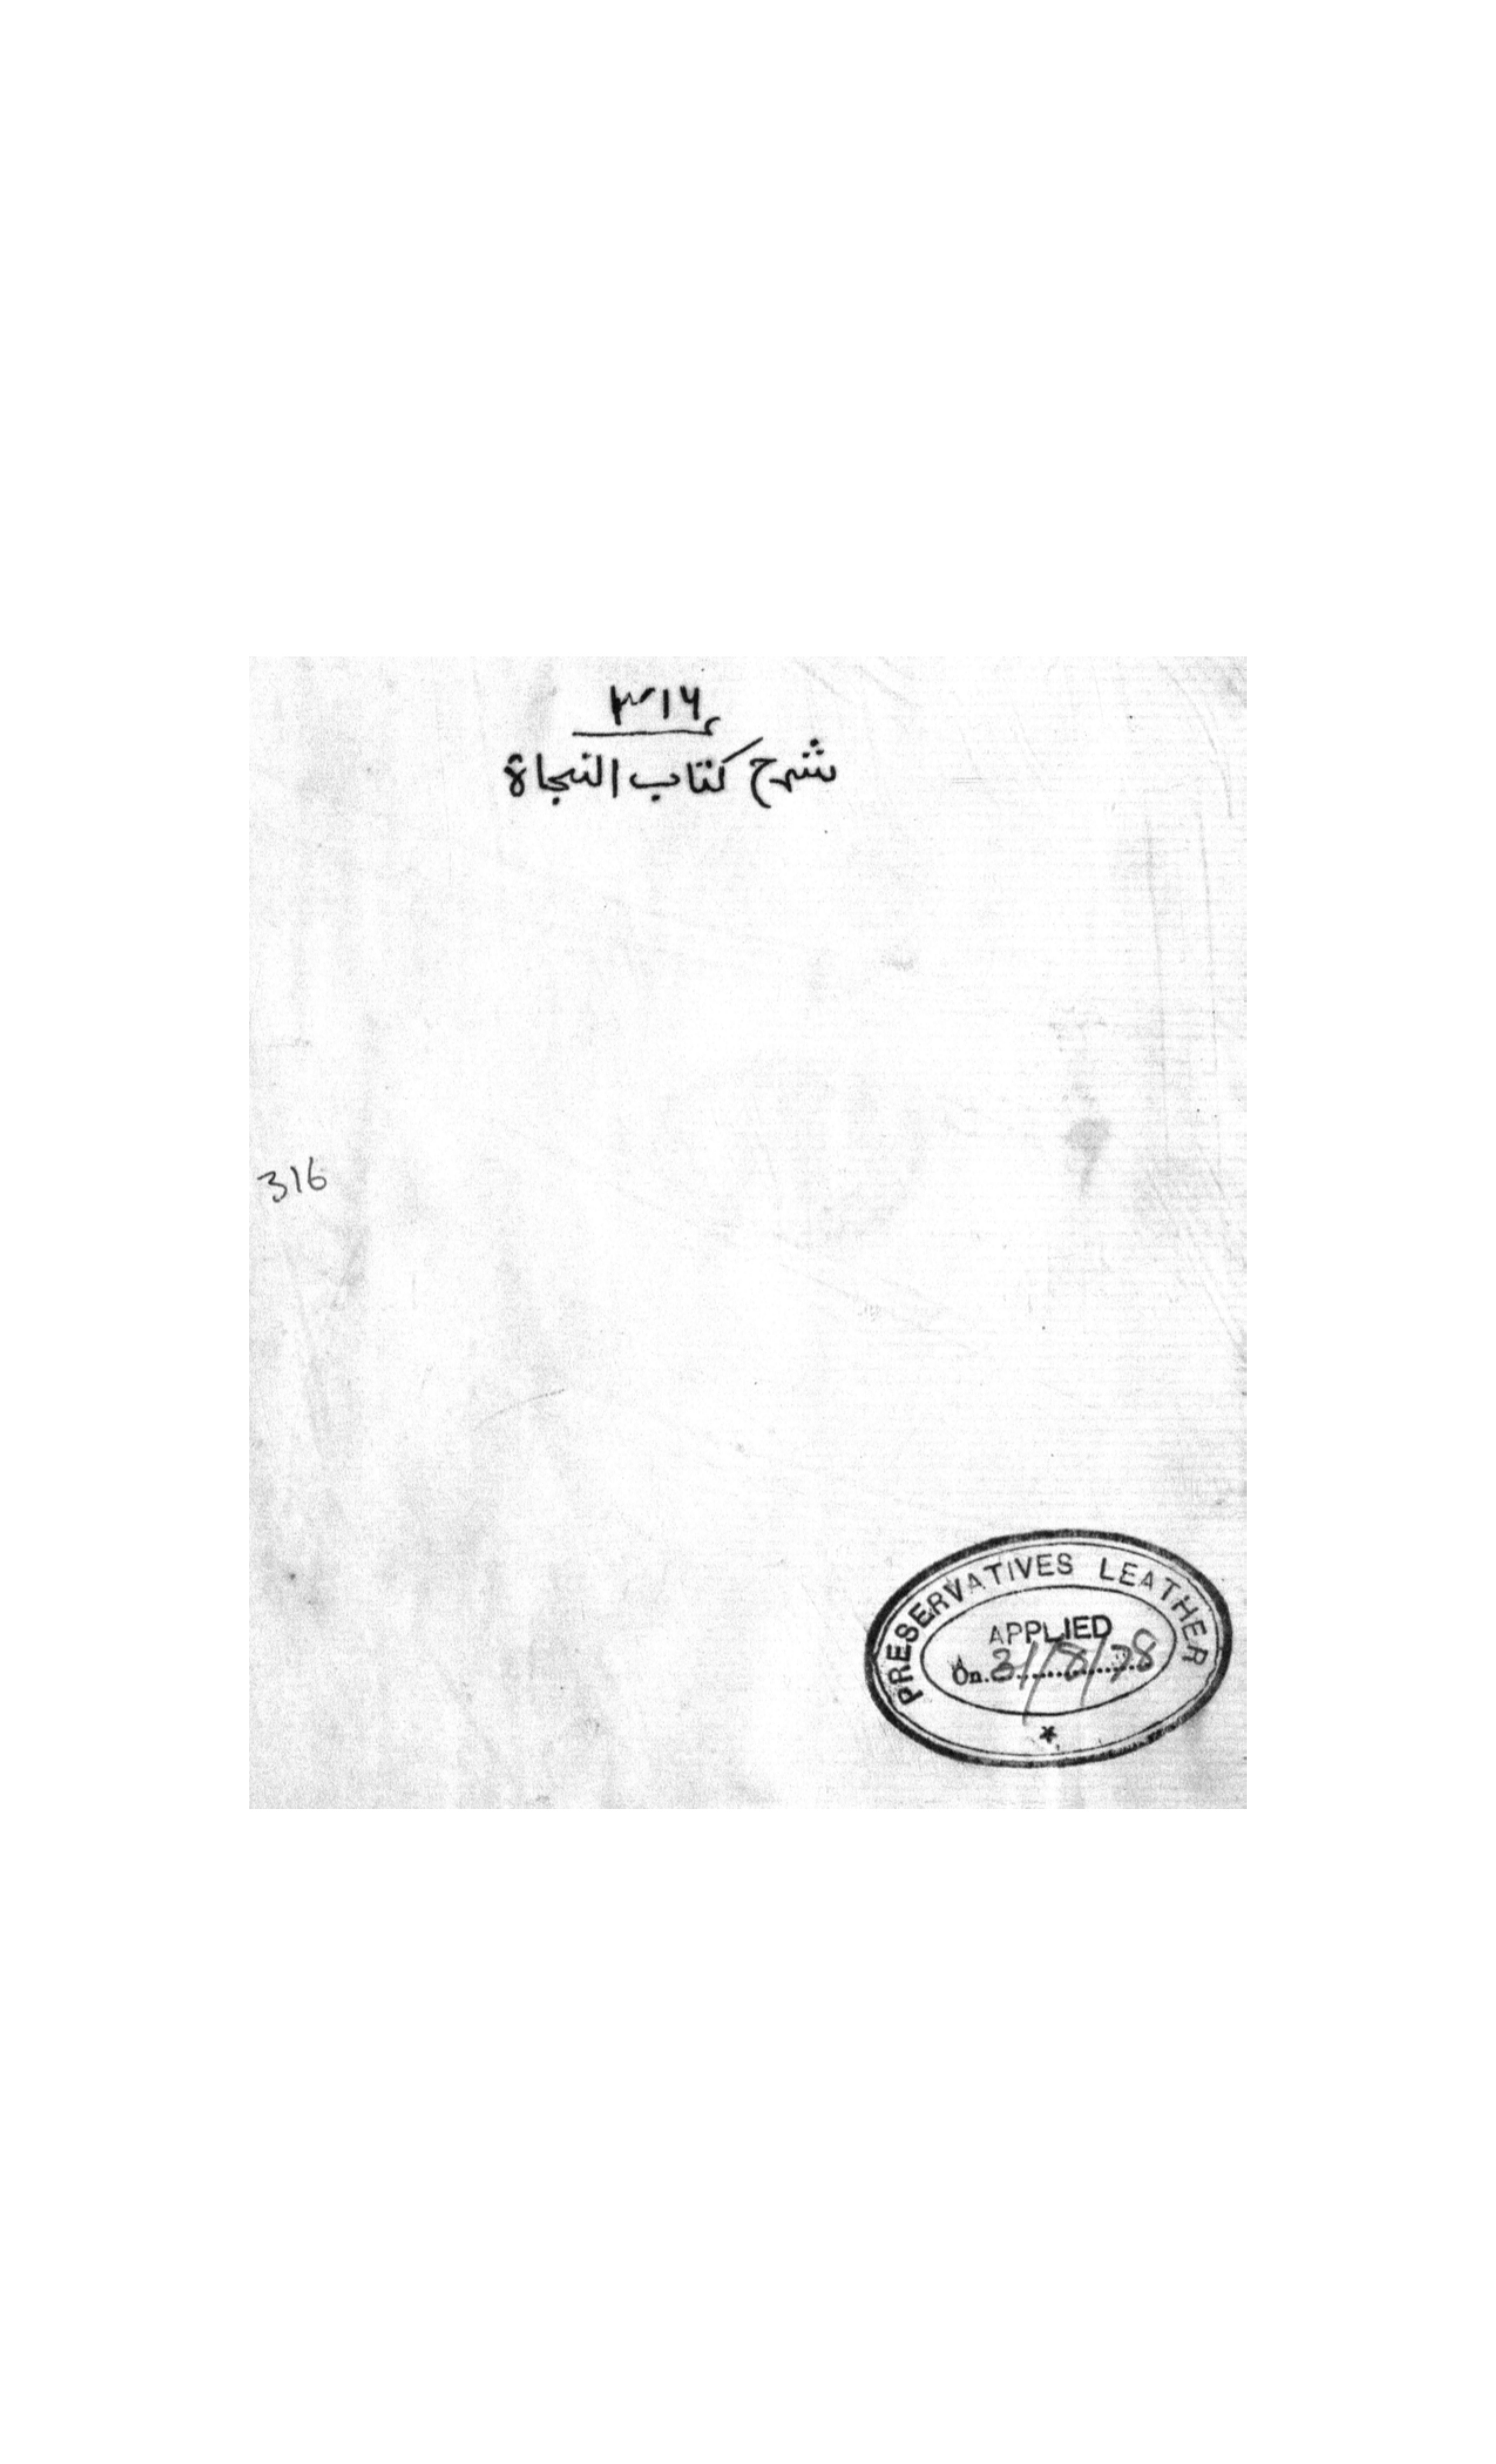 ۳۱۶
شرح کتاب النجاة
316
PRESERVATIVES LEATHER
APPLIED
On. 31/8/78